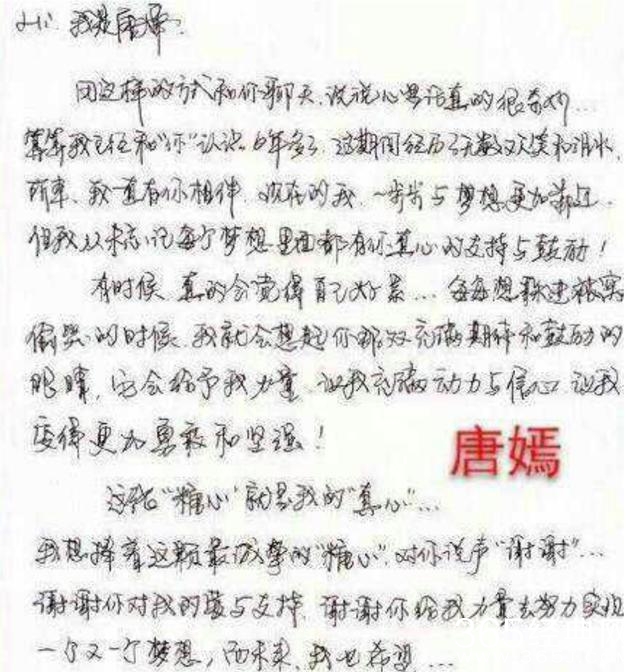 Hi，我是唐嫣.
用这样的方式和你聊天，说说心里话真的很奇妙...
算算我已经和"你"认识6年多了，这期间经历了无数次欢笑和泪水，
所幸，我一直有你相伴，现在的我，一步步与梦想更加靠近，
但我从未忘记每个梦想里面都有你真心的支持与鼓励！
有时候，真的会觉得自己好累...每每想躲进被窝
偷哭的时候，我就会想起你那双充满期待和鼓励的
眼睛，它会给予我力量，让我充满动力与信心，让我
变得更加勇敢和坚强！
唐嫣
这颗"糖心"就是我的"真心"...
我想捧着这颗最诚挚的"糖心"，对你说声"谢谢"...
谢谢你对我的爱与支持，谢谢你给我力量去努力实现
一个又一个梦想，而未来，我也希望...